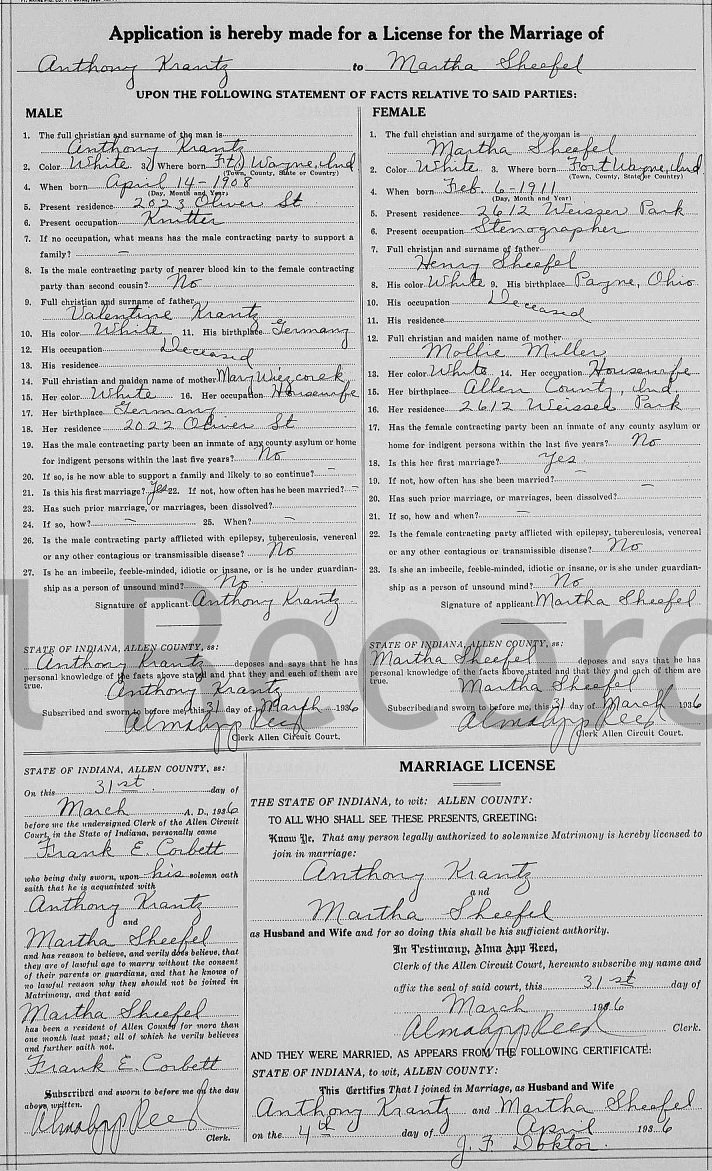 Application is hereby made for a License for the Marriage of
Anthony Krantz to Martha Sheefel
UPON THE FOLLOWING STATEMENT OF FACTS RELATIVE TO SAID PARTIES:
MALE
1. The full christian and surname of the man is
Anthony Krantz
2. Color White 3. Where born Ft. Wayne, Ind
(Town, County, State or Country)
4. When born April 14 - 1908
(Day, Month and Year)
5. Present residence 2023 Oliver St
6. Present occupation Knitter
7. If no occupation, what means has the male contracting party to support a
family? —
8. Is the male contracting party of nearer blood kin to the female contracting
party than second cousin? No
9. Full christian and surname of father
Valentine Krantz
10. His color White 11. His birthplace Germany
12. His occupation Deceased
13. His residence
14. Full christian and maiden name of mother Mary Wiezcorek
15. Her color White 16. Her occupation Housewife
17. Her birthplace Germany
18. Her residence 2022 Oliver St
19. Has the male contracting party been an inmate of any county asylum or home
for indigent persons within the last five years? No
20. If so, is he now able to support a family and likely to so continue? —
21. Is this his first marriage? Yes 22. If not, how often has he been married? —
23. Has such prior marriage, or marriages, been dissolved? —
24. If so, how? — 25. When? —
26. Is the male contracting party afflicted with epilepsy, tuberculosis, venereal
or any other contagious or transmissible disease? No
27. Is he an imbecile, feeble-minded, idiotic or insane, or is he under guardian-
ship as a person of unsound mind? No
Signature of applicant Anthony Krantz
STATE OF INDIANA, ALLEN COUNTY, ss:
Anthony Krantz deposes and says that he has
personal knowledge of the facts above stated and that they and each of them are
true.
Anthony Krantz
Subscribed and sworn to before me, this 31 day of March 1936
Alma App Reed
Clerk Allen Circuit Court.
FEMALE
1. The full christian and surname of the woman is
Martha Sheefel
2. Color White 3. Where born Fort Wayne, Ind.
(Town, County, State or Country)
4. When born Feb. 6 - 1911
(Day, Month and Year)
5. Present residence 2612 Weisser Park
6. Present occupation Stenographer
7. Full christian and surname of father
Henry Sheefel
8. His color White 9. His birthplace Payne, Ohio
10. His occupation Deceased
11. His residence
12. Full christian and maiden name of mother
Mollie Miller
13. Her color White 14. Her occupation Housewife
15. Her birthplace Allen County, Ind.
16. Her residence 2612 Weisser Park
17. Has the female contracting party been an inmate of any county asylum or
home for indigent persons within the last five years? No
18. Is this her first marriage? Yes
19. If not, how often has she been married? —
20. Has such prior marriage, or marriages, been dissolved? —
21. If so, how and when? —
22. Is the female contracting party afflicted with epilepsy, tuberculosis, venereal
or any other contagious or transmissible disease? No
23. Is she an imbecile, feeble-minded, idiotic or insane, or is she under guardian-
ship as a person of unsound mind? No
Signature of applicant Martha Sheefel
STATE OF INDIANA, ALLEN COUNTY, ss:
Martha Sheefel deposes and says that he has
personal knowledge of the facts above stated and that they and each of them are
true.
Martha Sheefel
Subscribed and sworn to before me, this 31 day of March 1936
Alma App Reed
Clerk Allen Circuit Court.
l Record
STATE OF INDIANA, ALLEN COUNTY, ss:
On this 31st day of
March A. D., 1936
before me the undersigned Clerk of the Allen Circuit
Court, in the State of Indiana, personally came
Frank E. Corbett
who being duly sworn, upon his solemn oath
saith that he is acquainted with
Anthony Krantz
and
Martha Sheefel
and has reason to believe, and verily does believe, that
they are of lawful age to marry without the consent
of their parents or guardians, and that he knows of
no lawful reason why they should not be joined in
Matrimony, and that said
Martha Sheefel
has been a resident of Allen County for more than
one month last past; all of which he verily believes
and further saith not.
Frank E. Corbett
Subscribed and sworn to before me on the day
above written.
Alma App Reed
Clerk.
MARRIAGE LICENSE
THE STATE OF INDIANA, to wit: ALLEN COUNTY:
TO ALL WHO SHALL SEE THESE PRESENTS, GREETING:
Know Ye, That any person legally authorized to solemnize Matrimony is hereby licensed to
join in marriage:
Anthony Krantz
and
Martha Sheefel
as Husband and Wife and for so doing this shall be his sufficient authority.
In Testimony, Alma App Reed,
Clerk of the Allen Circuit Court, hereunto subscribe my name and
affix the seal of said court, this 31st day of
March 1936
Alma App Reed Clerk.
AND THEY WERE MARRIED, AS APPEARS FROM THE FOLLOWING CERTIFICATE:
STATE OF INDIANA, to wit, ALLEN COUNTY:
This Certifies That I joined in Marriage, as Husband and Wife
Anthony Krantz and Martha Sheefel
on the 4th day of April 1936
J. F. Doktor.